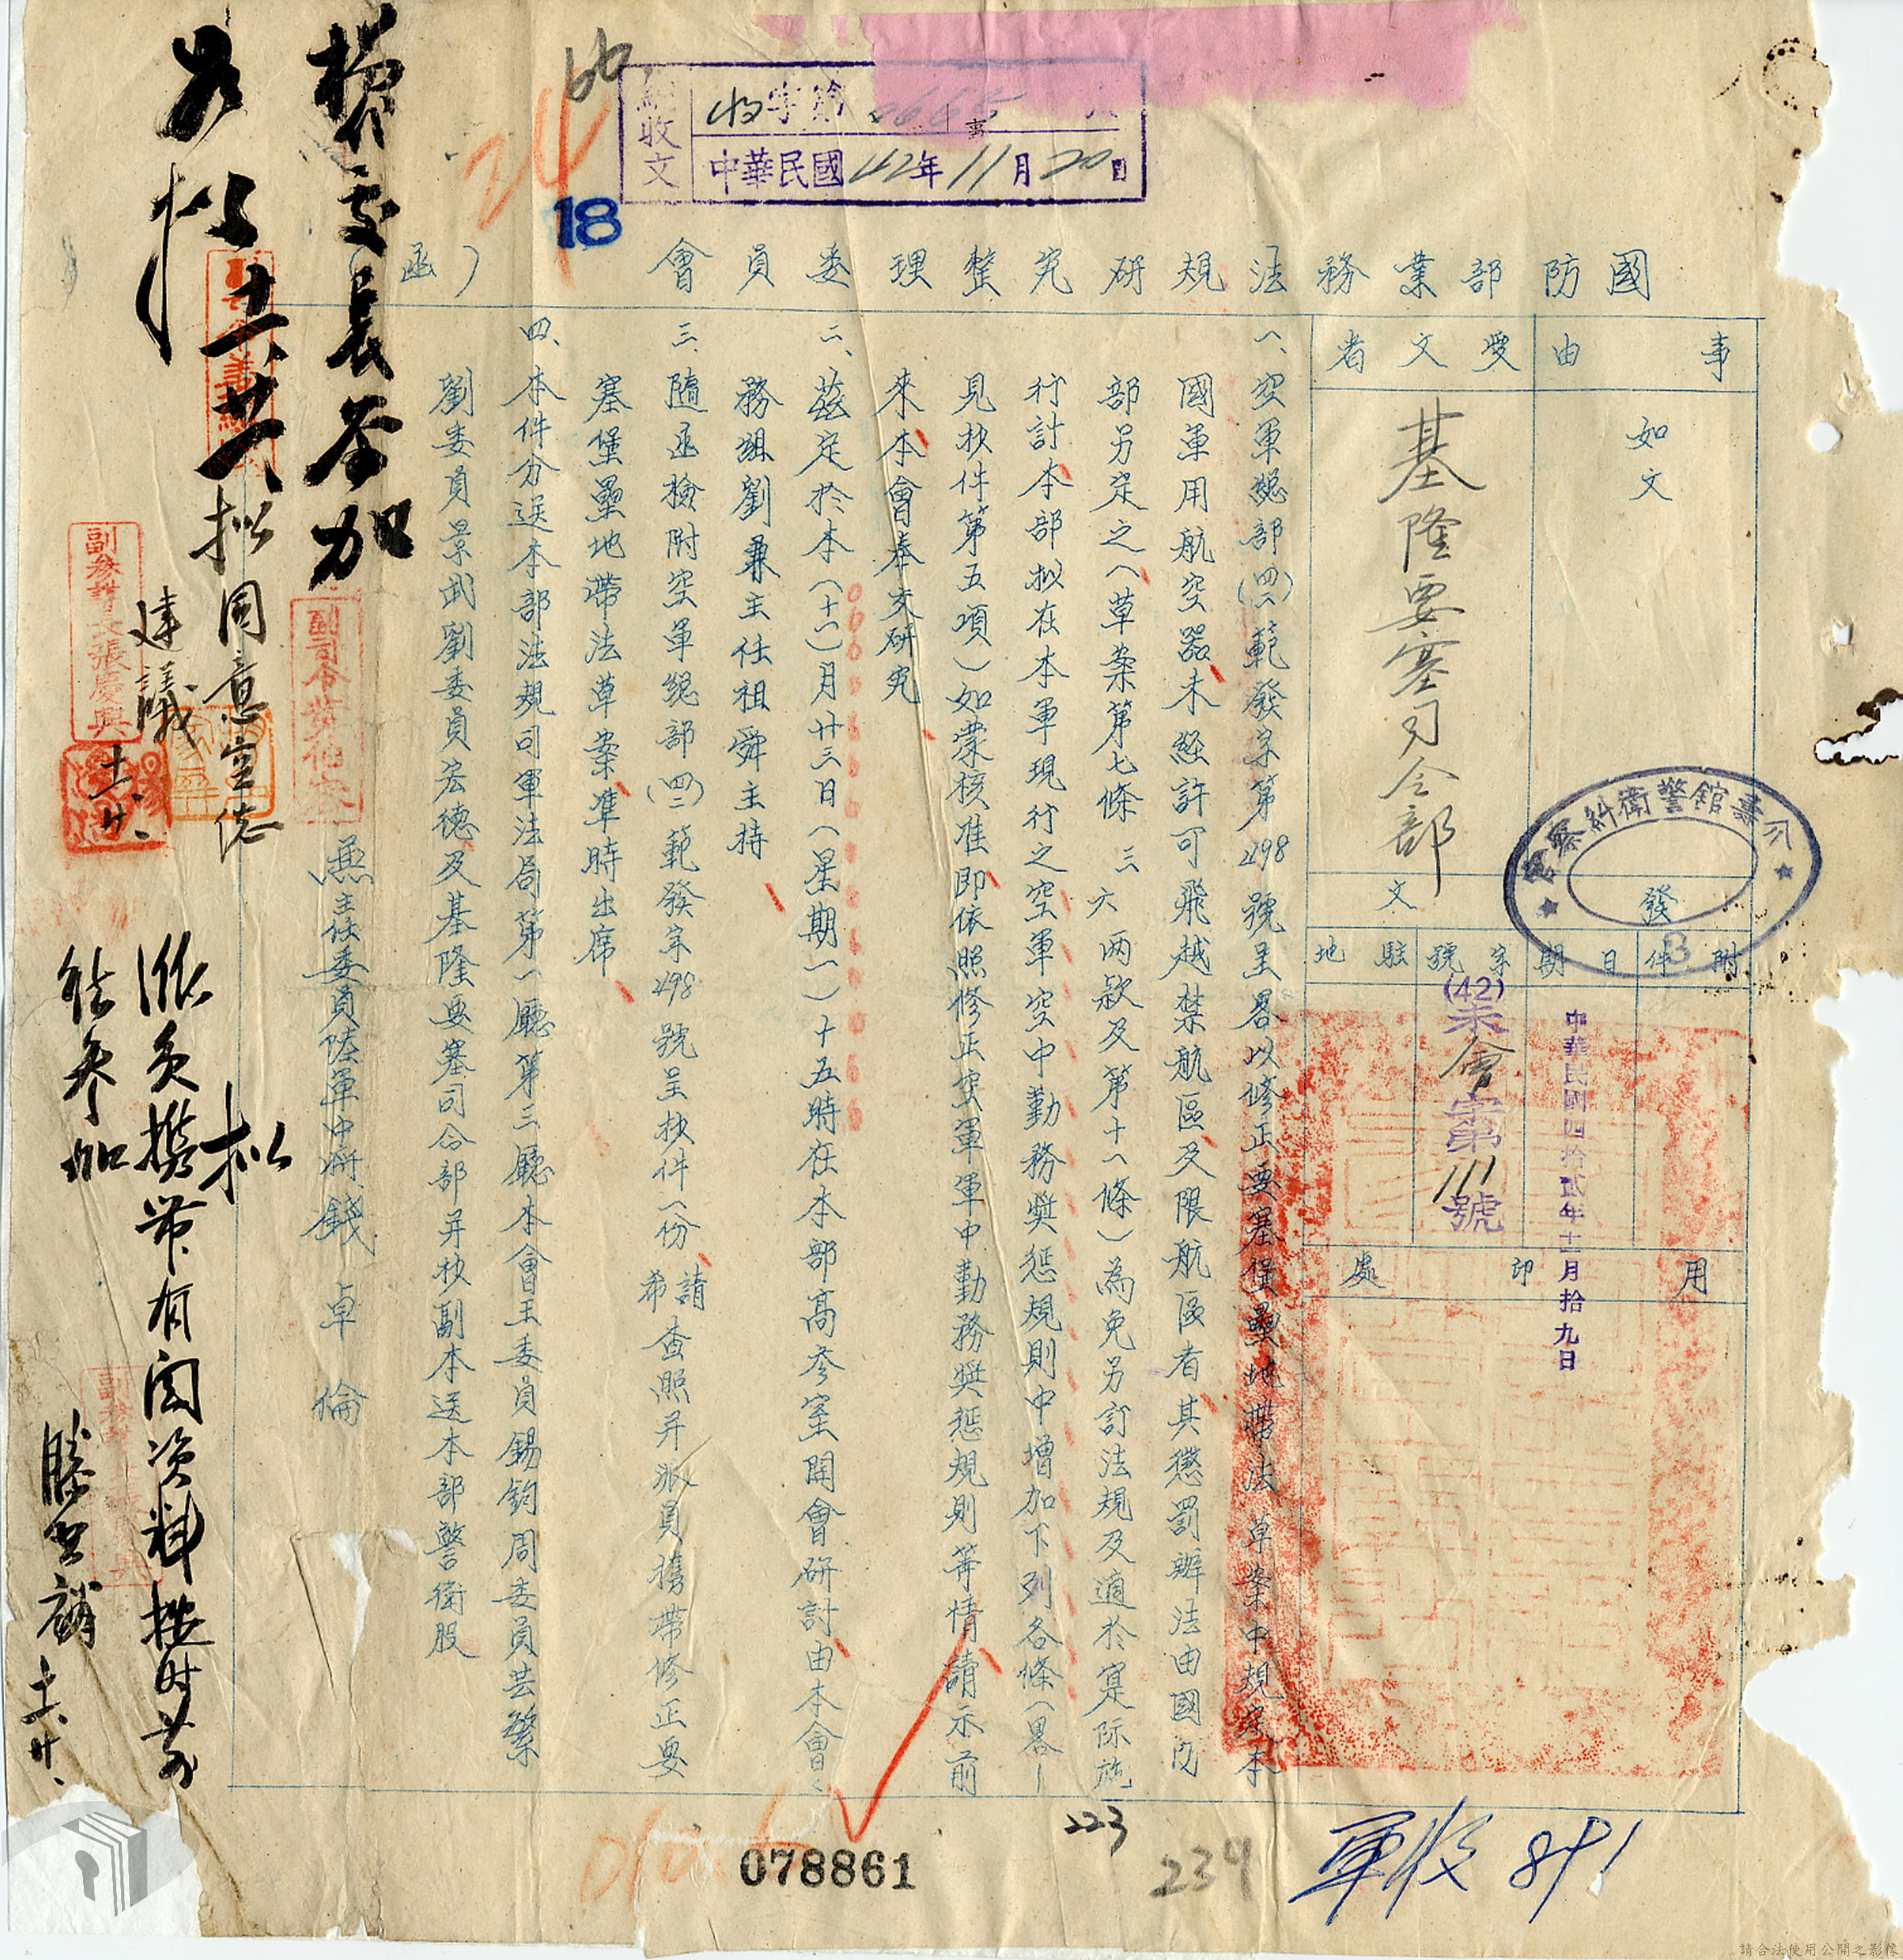 總收文
收字第
中華民國42年11月20日
18
國防部業務法規研究整理委員會(函)
事由
如文
受文者
基隆要塞司令部
發文
附件
日期
中華民國四拾貳年十一月拾九日
字號
(42)業會字第111號
駐地
用印處
一、空軍總部(四二)範發字第498號呈畧以修正要塞堡壘地帶法草案中規定本
國軍用航空器未經許可飛越禁航區及限航區者其懲罰辦法由國防
部另定之(草案第七條三六兩款及第十一條)為免另訂法規及適於實際施
行計本部拟在本軍現行之空軍空中勤務獎懲規則中增加下列各條(畧—
見抄件第五項)如蒙核准即依照修正空軍軍中勤務獎懲規則等情請示前
來本會奉交研究
二、茲定於本(十一)月廿三日(星期一)十五時在本部高參室開會研討由本會
務組劉兼主任祖舜主持
三、隨函檢附空軍總部(四二)範發字498號呈抄件一份請希查照并派員攜帶修正要
塞堡壘地帶法草案準時出席
四、本件分送本部法規司軍法局第一廳第三廳本會王委員錫鈞周委員芸繁
劉委員景武劉委員宏德及基隆要塞司令部并抄副本送本部警衛股
兼主任委員陸軍中將錢卓倫
同意
建議
副參謀長張慶興
拟
派員攜帶有関資料按时前
往參加
078861
223
234
軍收 891
請合法使用公開之影像